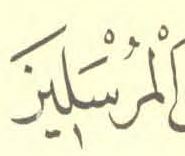 الْمُرْسَلِينَ